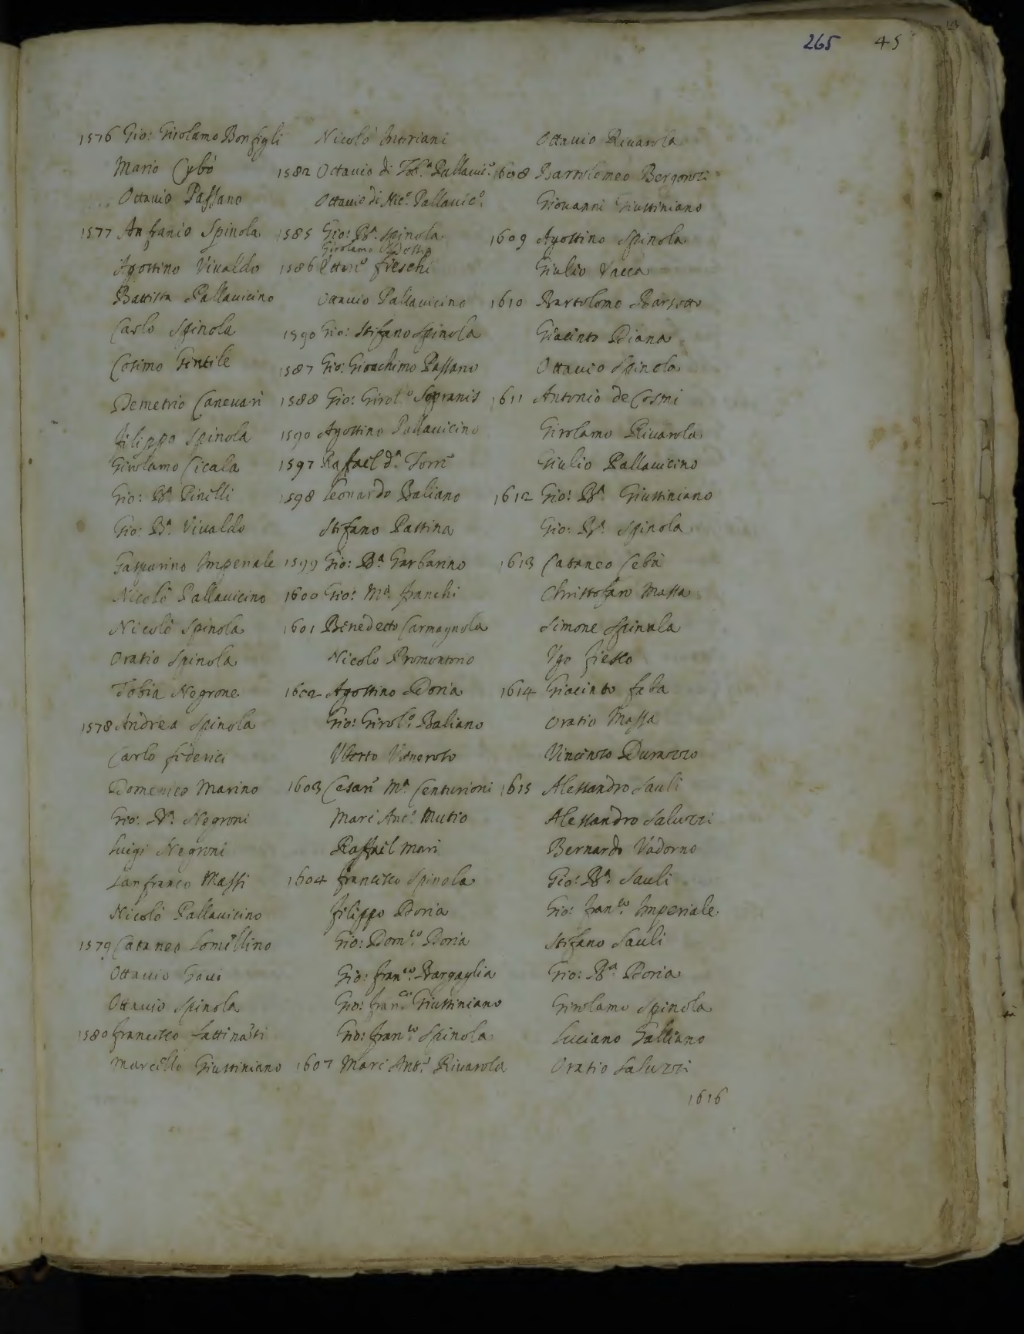 265 45
1576 Gio: Girolamo Bonfigli
Mario Cybò
Ottavio Passano
1577 Anfranio Spinola
Agostino Vivaldo
Battista Pallavicino
Carlo Spinola
Cosimo Gentile
Demetrio Canevari
Filippo Spinola
Girolamo Cicala
Gio: Bª. Pinelli
Gio: Bª. Vivaldo
Gasparino Imperiale
Nicolò Pallavicino
Nicolò Spinola
Oratio Spinola
Tobia Negrone
1578 Andrea Spinola
Carlo Federici
Domenico Marino
Gio: Bª. Negroni
Luigi Negroni
Lanfranco Massi
Nicolò Pallavicino
1579 Cataneo Lomellino
Ottavio Gavi
Ottavio Spinola
1580 Francesco
Marcello Giustiniano
Nicolò
1582 Ottavio di Tobª. Pallavicº.
Ottavio di Nicº. Pallavicº.
1585 Gio: Bª. Spinola
Girolamo Doria
1586 Fieschi
Ottavio Pallavicino
1590 Gio: Stefano Spinola
1587 Gio: Gioachimo Passano
1588 Gio: Girolº. Sopranis
1590 Agostino Pallavicino
1597 Raffael dª. Torre
1598 Leonardo Baliano
Stefano Pattina
1599 Gio: Bª. Garbarino
1600 Gio: Mª. Franchi
1601 Benedetto Carmagnola
Nicolo Promontorio
1602 Agostino Doria
Gio: Girolº. Baliano
Uberto
1603 Cesare Mª. Centurioni
Marc' Antº. Mutio
Raffael Mari
1604 Francesco Spinola
Filippo Doria
Gio: Domco. Doria
Gio: Franco. Bargaglia
Gio: Franco. Giustiniano
Gio: Franco. Spinola
1607 Marc' Antº. Rivarola
Ottavio Rivarola
1608 Bartolomeo
Giovanni Giustiniano
1609 Agostino Spinola
Giulio Vacca
1610 Bartolomeo
Giacinto Diana
Ottavio Spinola
1611 Antonio de Cosmi
Girolamo Rivarola
Giulio Pallavicino
1612 Gio: Bª. Giustiniano
Gio: Bª. Spinola
1613 Cataneo Cebà
Christofaro Massa
Simone Spinola
Ugo Fiesco
1614 Giacinto
Oratio Massa
Vincenzo Durazzo
1615 Alessandro Sauli
Alessandro Saluzzi
Bernardo
Gio: Bª. Sauli
Gio: Franco. Imperiale
Stefano Sauli
Gio: Bª. Doria
Girolamo Spinola
Luciano
Oratio Saluzzi
1616